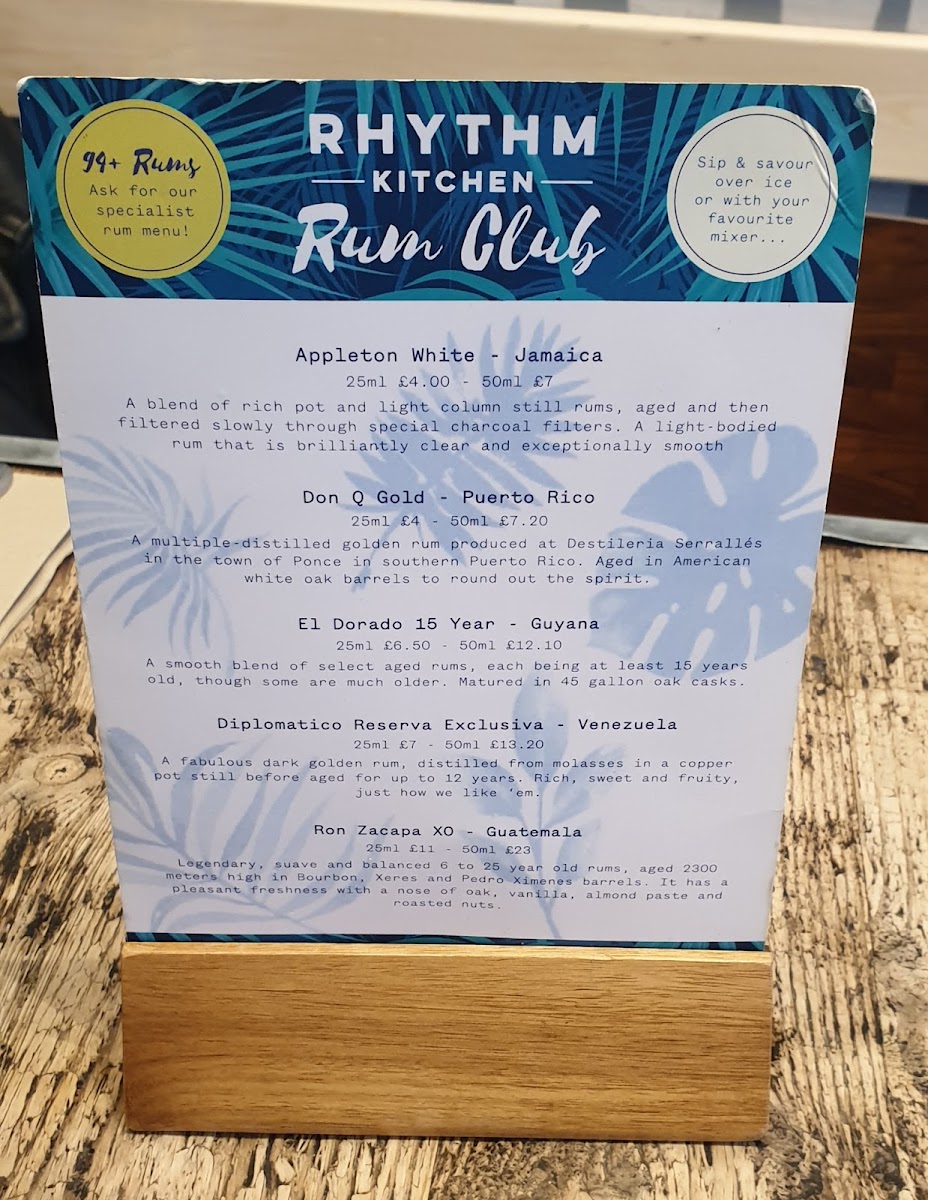 99+ Rums
Ask for our
specialist
rum menu!
RHYTHM
KITCHEN
Rum Club
Sip & savour
over ice
or with your
favourite
mixer...
Appleton White - Jamaica
25ml £4.00 - 50ml £7
A blend of rich pot and light column still rums, aged and then
filtered slowly through special charcoal filters. A light-bodied
rum that is brilliantly clear and exceptionally smooth
Don Q Gold - Puerto Rico
25ml £4 - 50ml £7.20
A multiple-distilled golden rum produced at Destileria Serrallés
in the town of Ponce in southern Puerto Rico. Aged in American
white oak barrels to round out the spirit.
El Dorado 15 Year - Guyana
25ml £6.50 - 50ml £12.10
A smooth blend of select aged rums, each being at least 15 years
old, though some are much older. Matured in 45 gallon oak casks.
Diplomatico Reserva Exclusiva - Venezuela
25ml £7 - 50ml £13.20
A fabulous dark golden rum, distilled from molasses in a copper
pot still before aged for up to 12 years. Rich, sweet and fruity,
just how we like 'em.
Ron Zacapa XO - Guatemala
25ml £11 - 50ml £23
Legendary, suave and balanced 6 to 25 year old rums, aged 2300
meters high in Bourbon, Xeres and Pedro Ximenes barrels. It has a
pleasant freshness with a nose of oak, vanilla, almond paste and
roasted nuts.